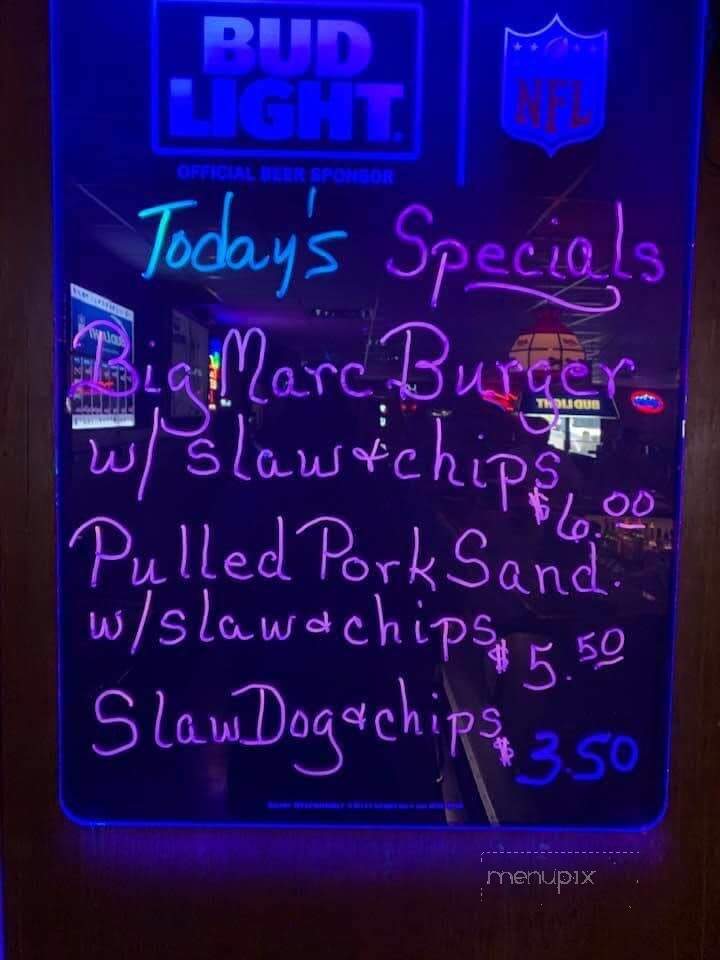 BUD
LIGHT
NFL
OFFICIAL BEER SPONSOR
Today's Specials
Big Marc Burger
w/ slaw & chips
$6.00
Pulled Pork Sand.
w/ slaw & chips
$5.50
Slaw Dog & chips
$3.50
menupix